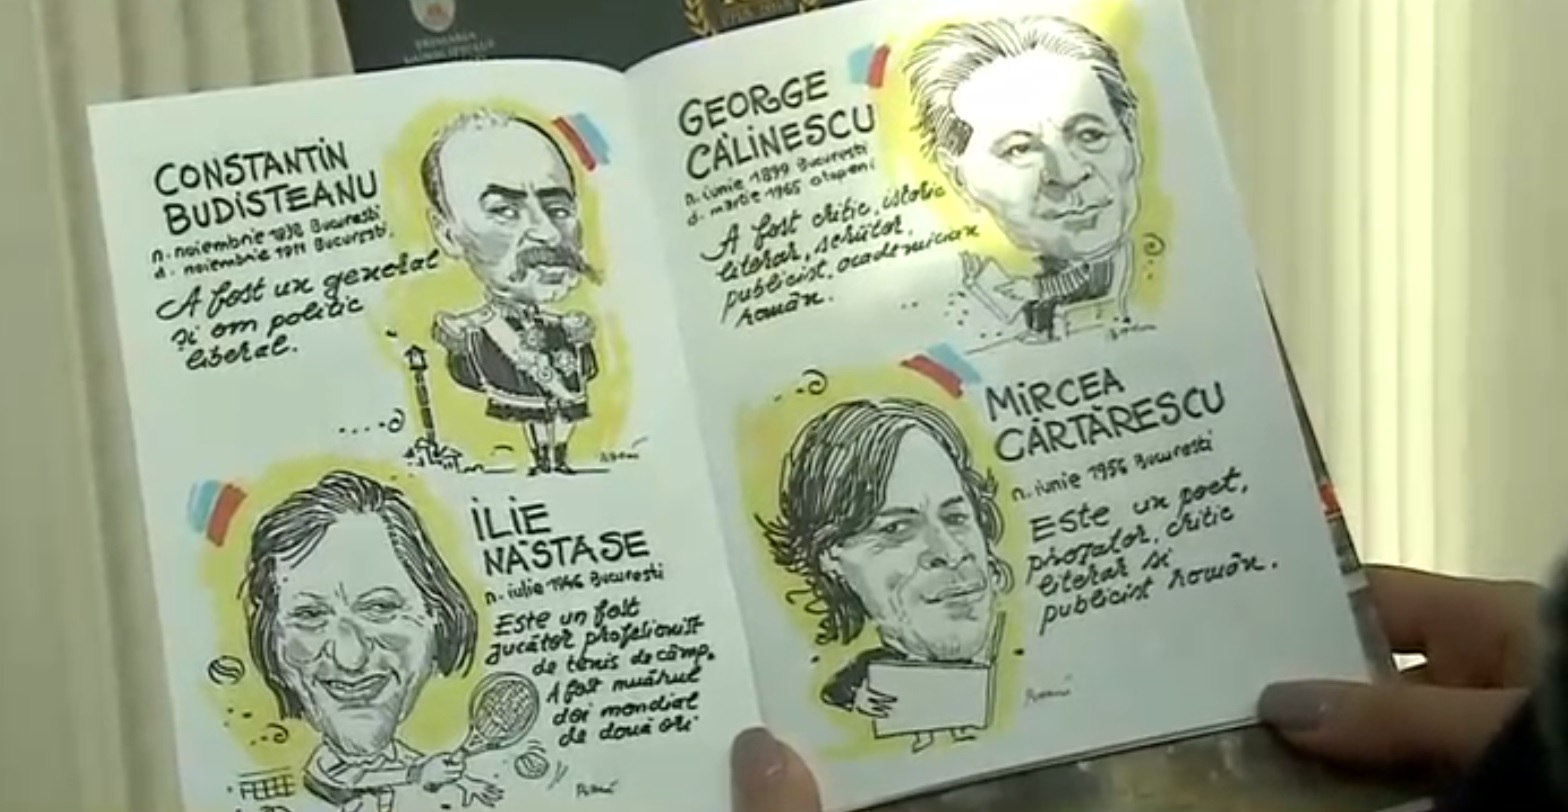 PRIMĂRIA
CONSTANTIN
BUDISTEANU
n. noiembrie 1838 Bucuresti
d. noiembrie 1911 Bucuresti.
A fost un general
și om politic
liberal.
ILIE
NĂSTASE
n. iulie 1946 Bucuresti
Este un fost
jucător profesionist
de tenis de câmp.
A fost numărul
doi mondial
de două ori
GEORGE
CĂLINESCU
n. iunie 1899 Bucuresti
d. martie 1965 Otopeni
A fost critic, istoric
literar, scriitor,
publicist, academician
român.
MIRCEA
CĂRTĂRESCU
n. iunie 1956 Bucuresti
Este un poet,
prozator, critic
literar si
publicist român.